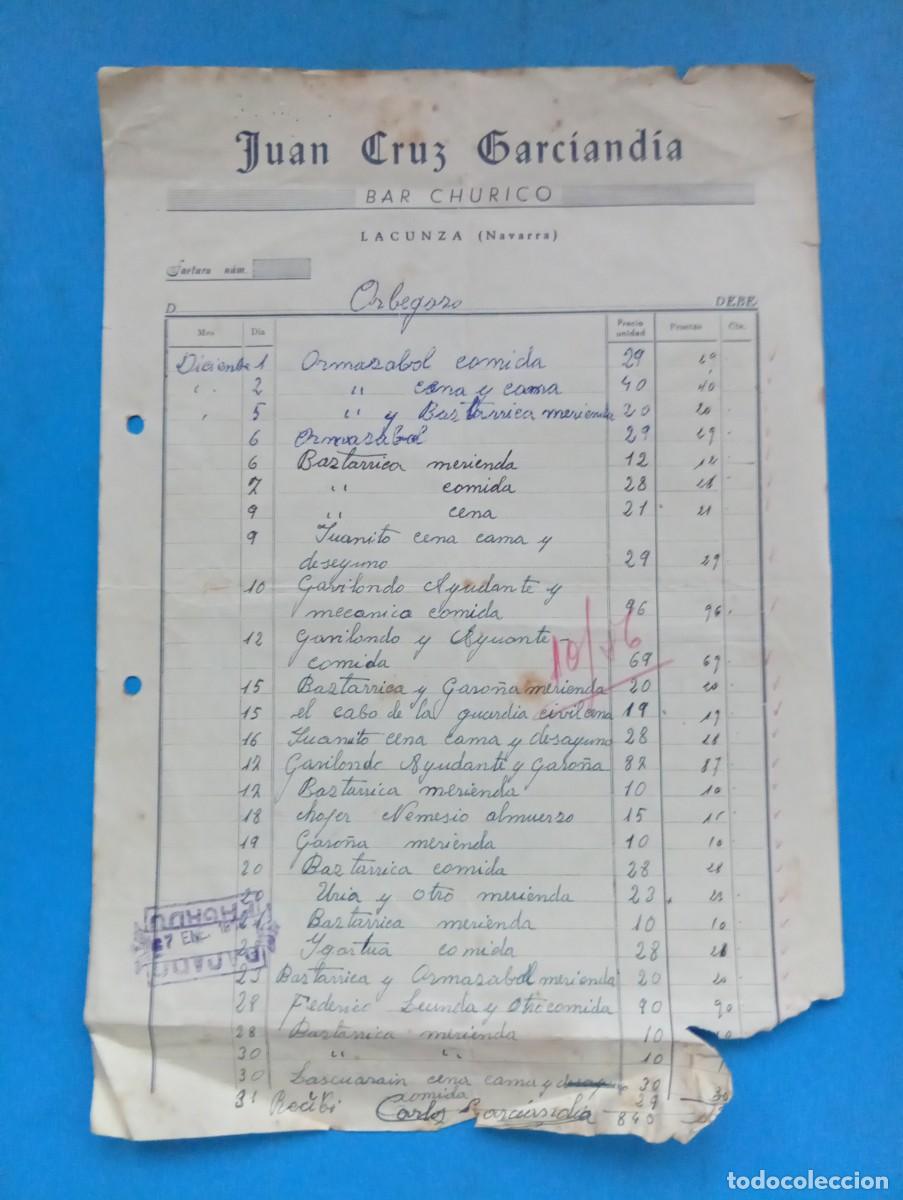 Juan Cruz Garciandía
BAR CHURICO
LACUNZA (Navarra)
Factura núm.
D Orbegozo DEBE
Mes Día Precio unidad Pesetas Cts.
Diciembre 1 Ormazabol comida 29 29
" 2 " cena y cama 40 40
" 5 " y Baztarrica merienda 20 20
6 Ormazabol 29 29
6 Baztarrica merienda 12 12
7 " comida 28 28
9 " cena 21 21
9 Juanito cena cama y
deseyuno 29 29
10 Garilondo Ayudante y
mecanico comida 96 96
12 Garilondo y Ayuante
comida 69 69
15 Baztarrica y Garoña merienda 20 20
15 el cabo de la guardia civil cena 19 19
16 Juanito cena cama y desayuno 28 28
17 Garilondo Ayudante y Garoña 87 87
17 Baztarrica merienda 10 10
18 chofer Nemesio almuerzo 15 15
19 Garoña merienda 10 10
20 Baztarrica comida 28 28
20 Uria y Otro merienda 23 23
21 Baztarrica merienda 10 10
Ygartua comida 28 28
23 Baztarrica y Ormazabol merienda 20 20
28 Federico Lecunda y Otro comida 90 90
28 Baztarrica merienda 10 10
30 " " 10
30 Lascuarain cena cama y desayuno 30 30
31 comida 29
Recibi Carlos Garciandia 840
PAGADO
7 ENE.
todocoleccion
todocoleccion.net